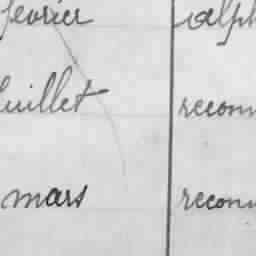 février alph
juillet recon
mars recon